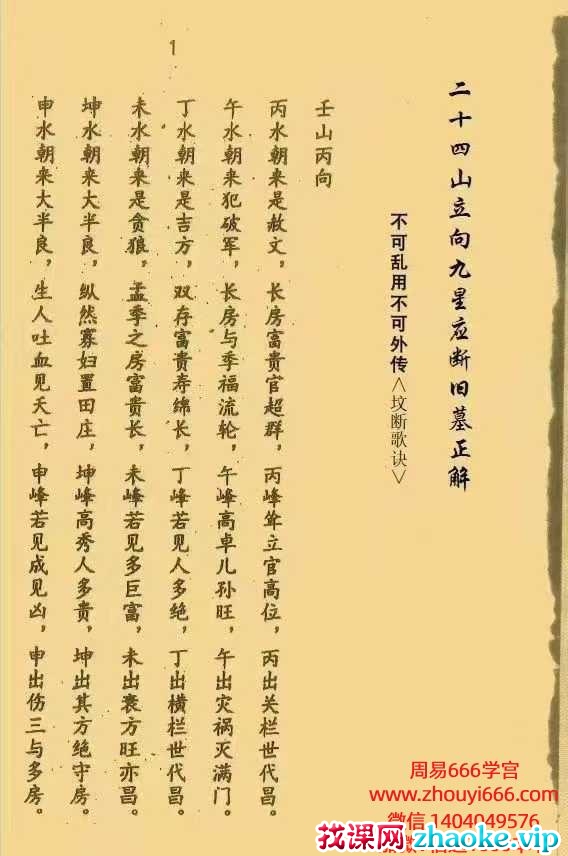 1
二十四山立向九星应断旧墓正解
不可乱用不可外传<坟断歌诀>
壬山丙向
丙水朝来是赦文，长房富贵官超群，丙峰耸立官高位，丙出关栏世代昌。
午水朝来犯破军，长房与季福流轮，午峰高卓儿孙旺，午出灾祸灭满门。
丁水朝来是吉方，双存富贵寿绵长，丁峰若见人多绝，丁出横栏世代昌。
未水朝来是贪狼，孟季之房富贵长，未峰若见多巨富，未出衰方旺亦昌。
坤水朝来大半良，纵然寡妇置田庄，坤峰高秀人多贵，坤出其方绝守房。
申水朝来大半良，生人吐血见夭亡，申峰若见成见凶，申出伤三与多房。
周易666学宫
www.zhouyi666.com
微信 1404049576
找课网zhaoke.vip